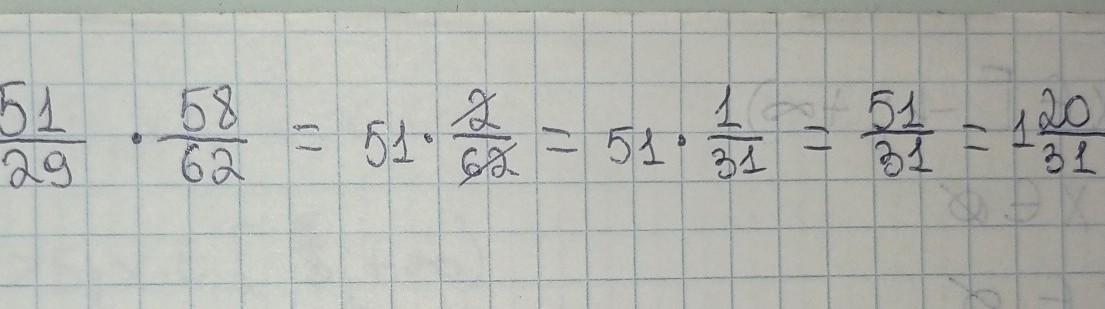 51/29 · 58/62 = 51 · 2/62 = 51 · 1/31 = 51/31 = 1 20/31